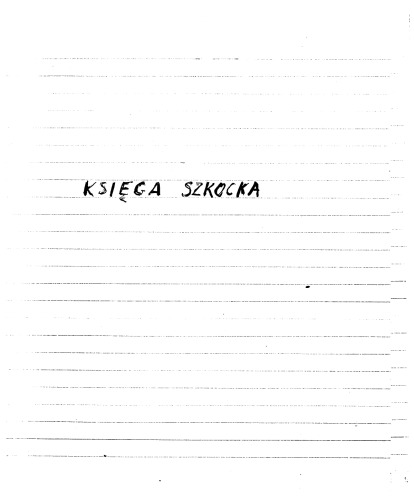 KSIĘGA SZKOCKA